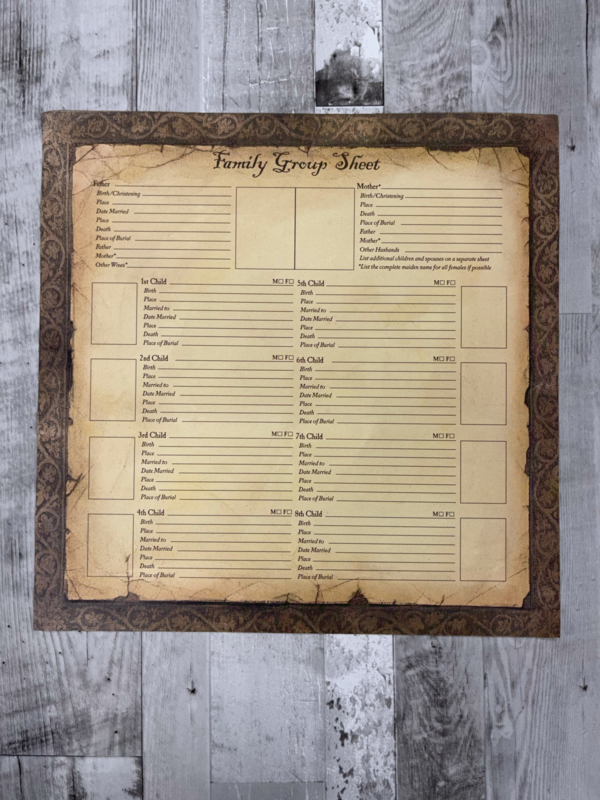 Family Group Sheet
Father
Birth/Christening
Place
Date Married
Place
Death
Place of Burial
Father
Mother*
Other Wives*
Mother*
Birth/Christening
Place
Death
Place of Burial
Father
Mother*
Other Husbands
List additional children and spouses on a separate sheet
*List the complete maiden name for all females if possible
1st Child M☐ F☐
Birth
Place
Married to
Date Married
Place
Death
Place of Burial
2nd Child M☐ F☐
Birth
Place
Married to
Date Married
Place
Death
Place of Burial
3rd Child M☐ F☐
Birth
Place
Married to
Date Married
Place
Death
Place of Burial
4th Child M☐ F☐
Birth
Place
Married to
Date Married
Place
Death
Place of Burial
5th Child M☐ F☐
Birth
Place
Married to
Date Married
Place
Death
Place of Burial
6th Child M☐ F☐
Birth
Place
Married to
Date Married
Place
Death
Place of Burial
7th Child M☐ F☐
Birth
Place
Married to
Date Married
Place
Death
Place of Burial
8th Child M☐ F☐
Birth
Place
Married to
Date Married
Place
Death
Place of Burial